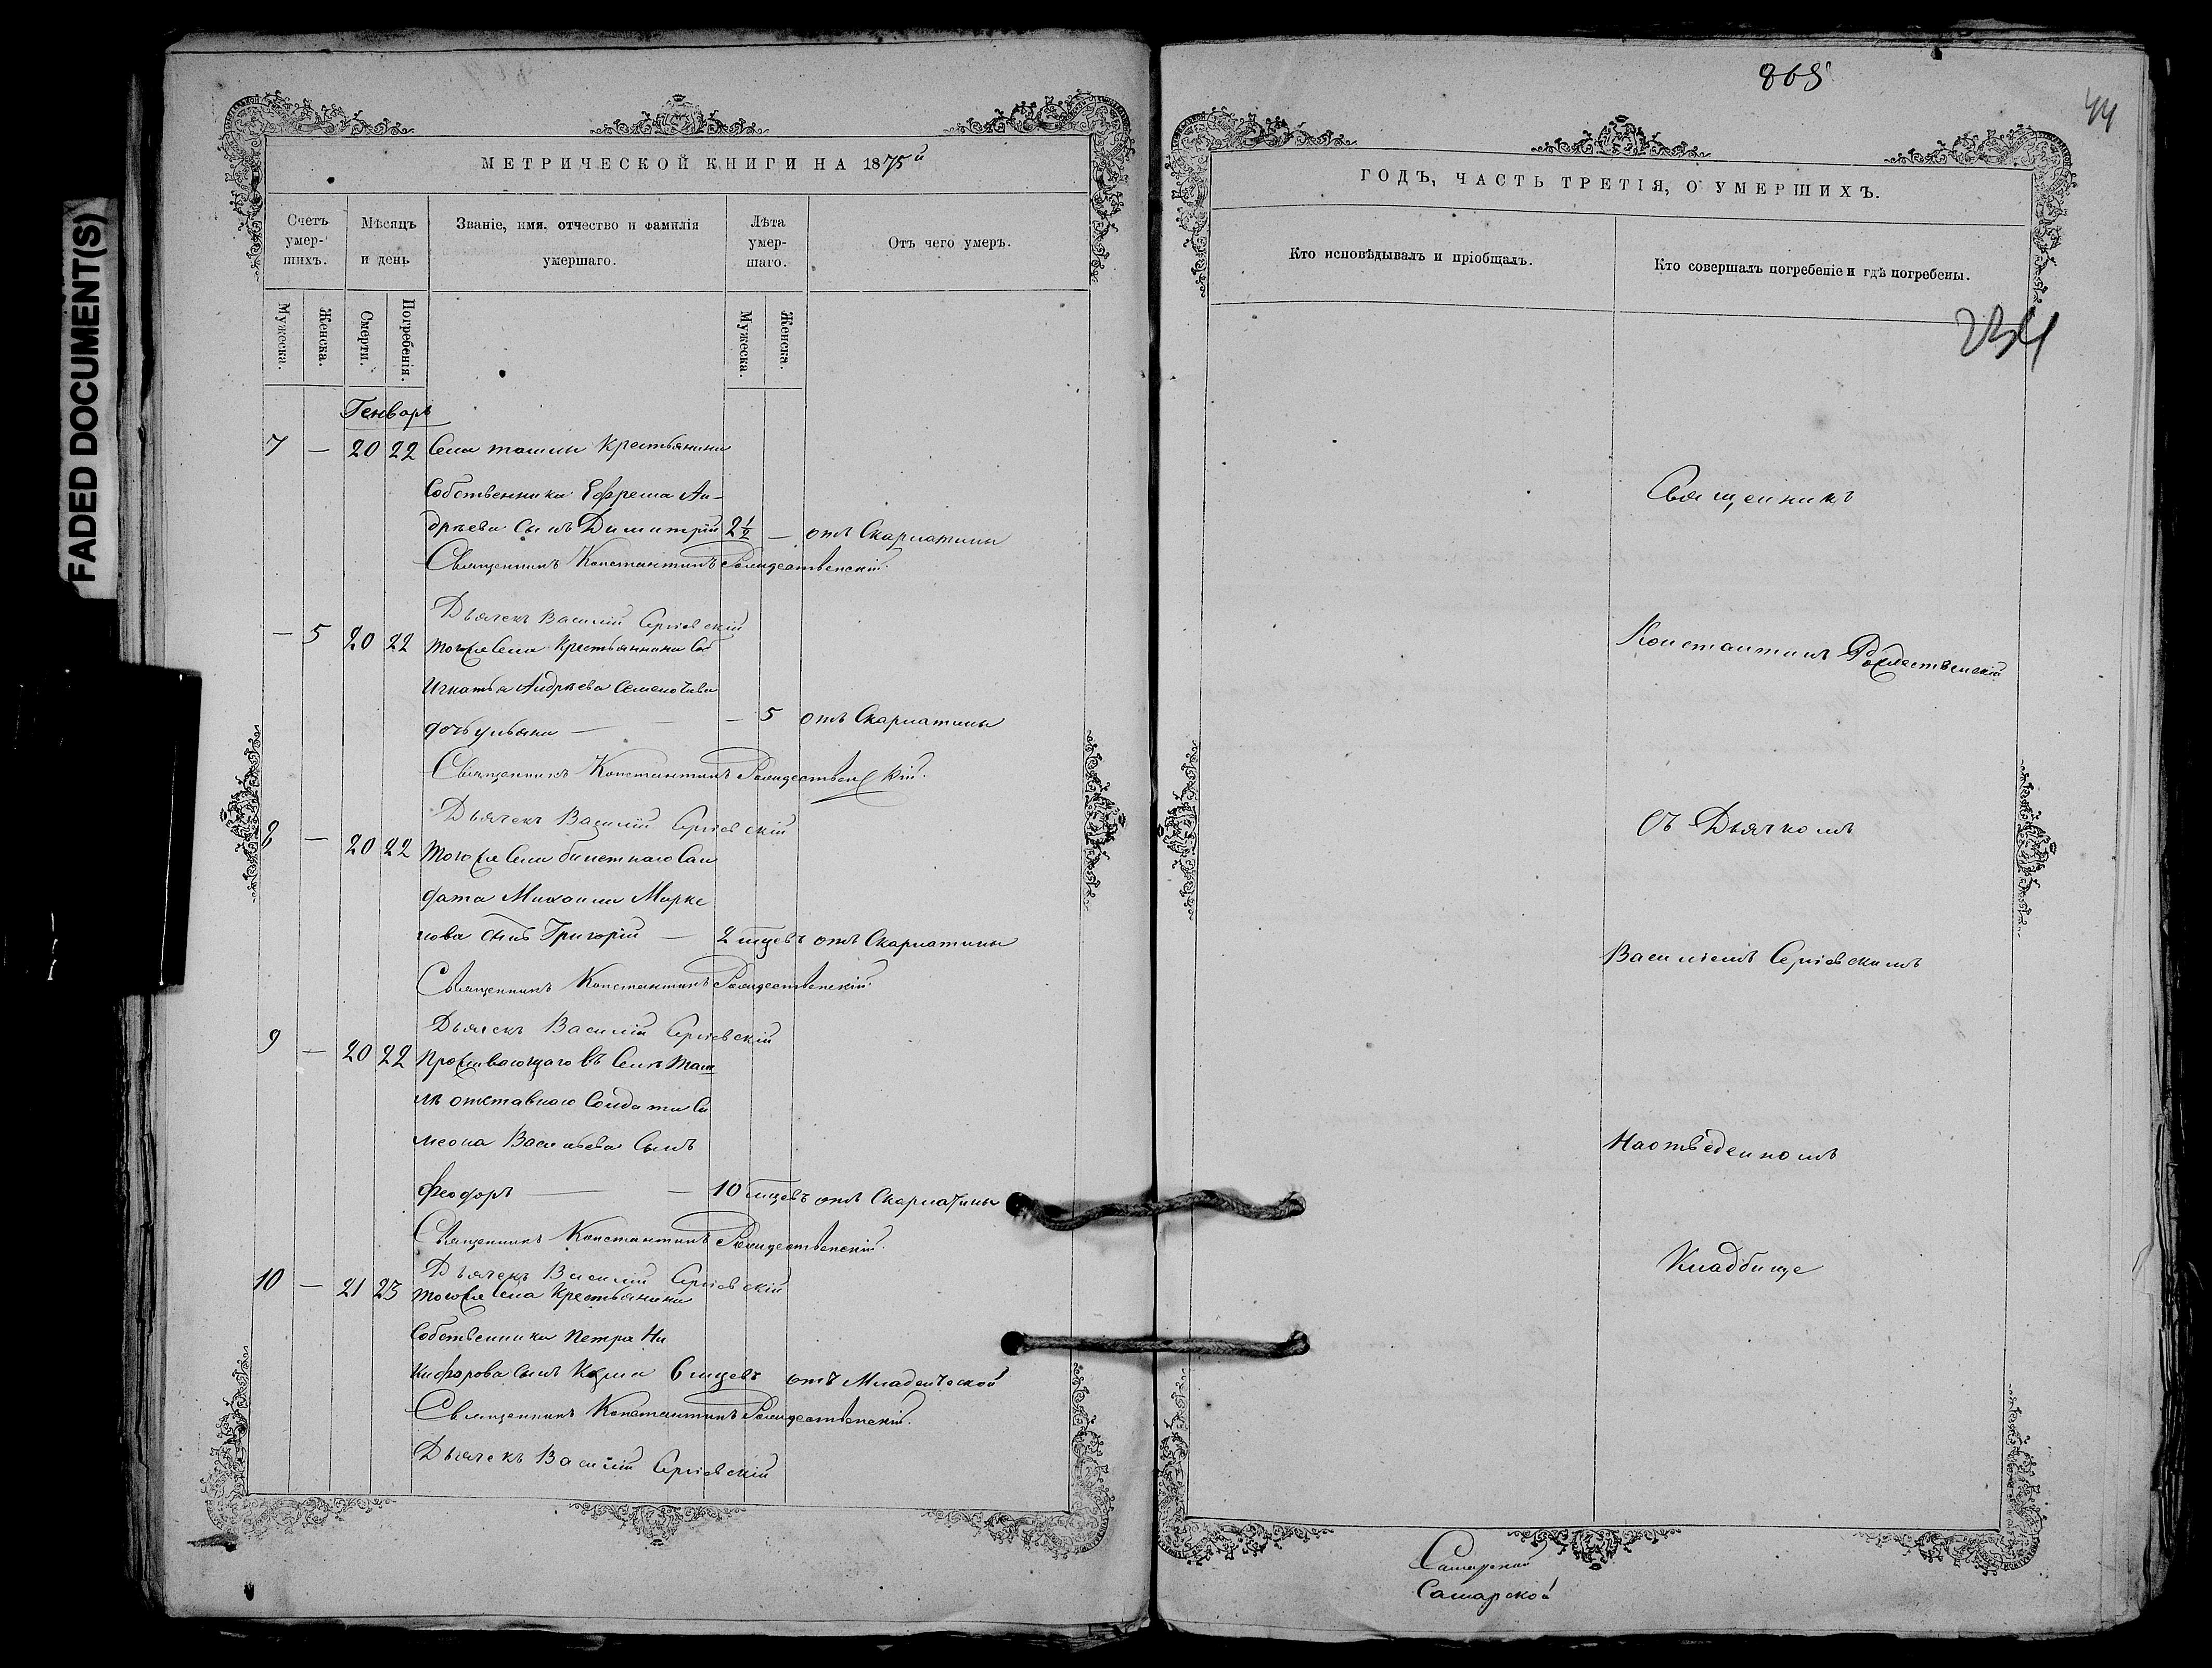 FADED DOCUMENT(S)
МЕТРИЧЕСКОЙ КНИГИ НА 1875й
Счетъ умер-шихъ.
Мѣсяцъ и день
Званіе, имя, отчество и фамилія умершаго.
Лѣта умер-шаго.
Отъ чего умеръ.
Мужеска.
Женска.
Смерти.
Погребенія.
Мужеска.
Женска.
Генварь
7 — 20 22 Села Крестьянина
Собственника Ефрема Ан-
дреева сынъ Димитрій 2½ — отъ Скарлатины
Священникъ Константинъ Рождественскій.
Дьячекъ Василій Сергіевскій
— 5 20 22 тогоже Села Крестьянина Соб
Игнатья Андреева
дочь Ульяна — — — 5 отъ Скарлатины
Священникъ Константинъ Рождественскій.
Дьячекъ Василій Сергіевскій
8 — 20 22 Тогоже Села билетнаго Сол
дата Михаила Марке
лова сынъ Григорій — 2 мцевъ отъ Скарлатины
Священникъ Константинъ Рождественскій.
Дьячекъ Василій Сергіевскій
9 — 20 22 Проживающаго въ Селѣ Таш
лѣ отставного Солдата Си
меона Васильева Сынъ
Феодоръ — — 10 мцевъ отъ Скарлатины
Священникъ Константинъ Рождественскій.
Дьячекъ Василій Сергіевскій
10 — 21 23 тогоже Села Крестьянина
Собственника Петра Ни
кифорова сынъ Козма 6 мцевъ отъ Младенческой
Священникъ Константинъ Рождественскій.
Дьячекъ Василій Сергіевскій
868
44
ГОДЪ, ЧАСТЬ ТРЕТІЯ, О УМЕРШИХЪ.
Кто исповѣдывалъ и пріобщалъ.
Кто совершалъ погребеніе и гдѣ погребены.
234
Священникъ
Константинъ Рождественскій
Съ Дьячкомъ
Василіемъ Сергіевскимъ
На отведенномъ
Кладбище
Самарской
Самарской